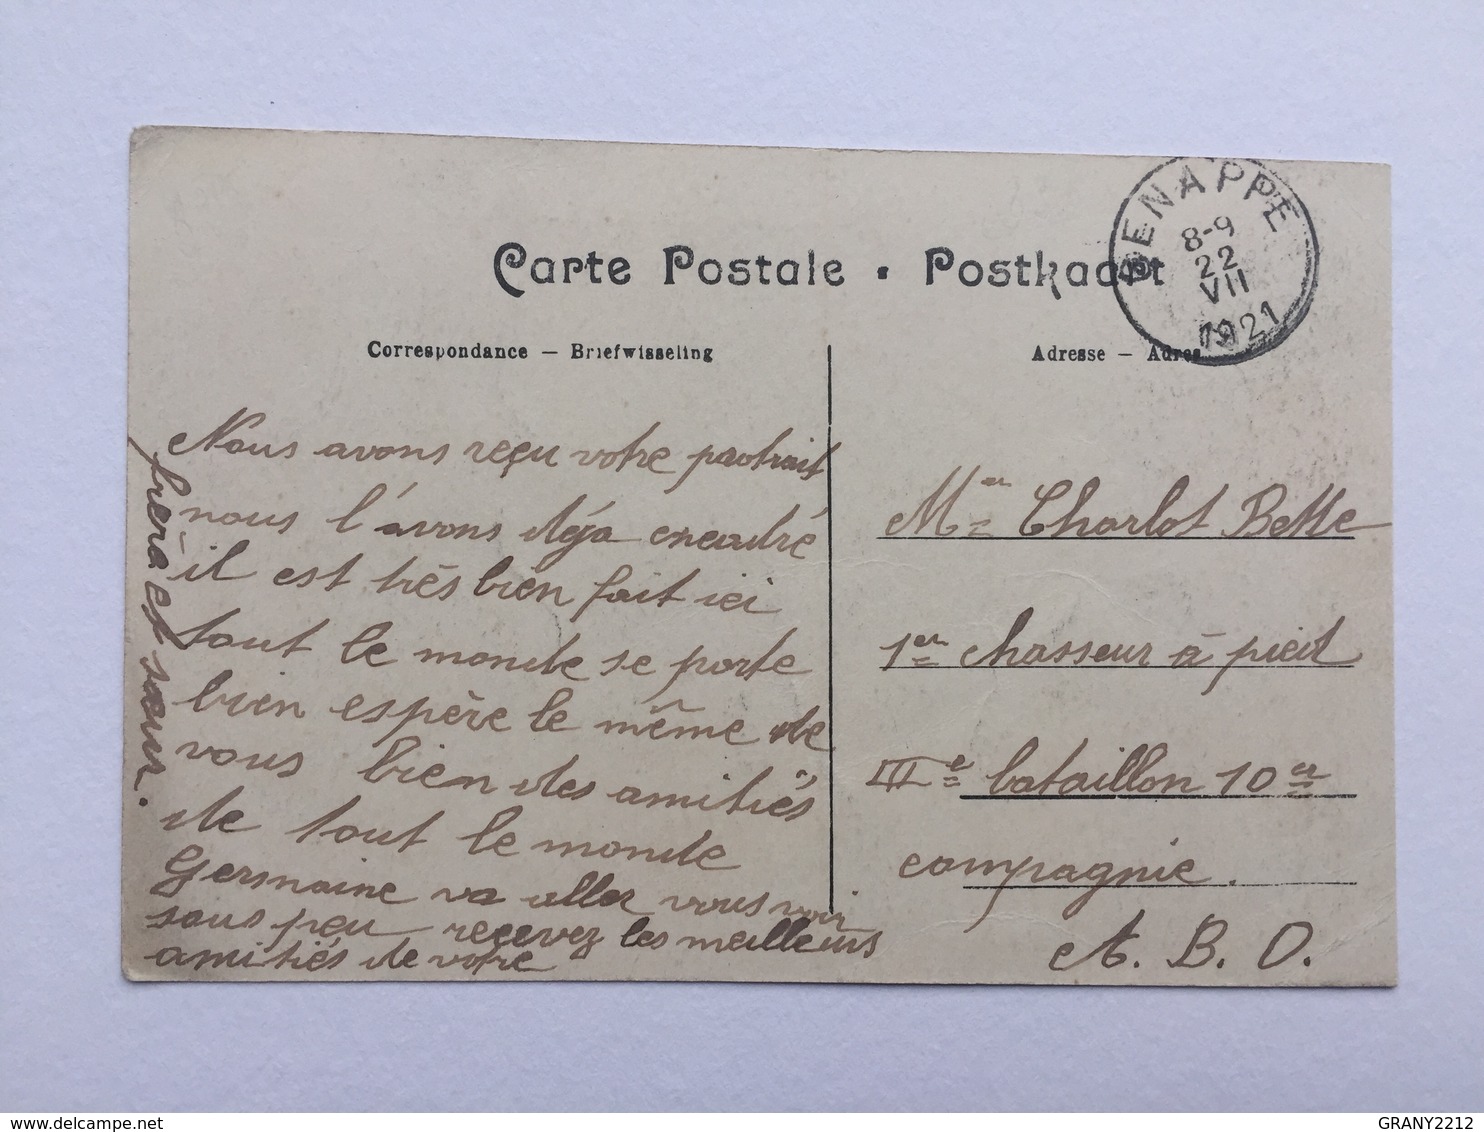 Carte Postale . Postkaart
GENAPPE
8-9
22
VII
1921
Correspondance — Briefwisseling
Adresse — Adres
Nous avons reçu votre portrait
nous l'avons déja encadré
il est très bien fait ici
tout le monde se porte
bien espère le même de
vous bien des amitiés
de tout le monde
Germaine va aller vous voir
sous peu recevez les meilleurs
amitiés de votre
frère et sœur.
Mer Charlot Bette
1er chasseur à pied
IIIe bataillon 10er
compagnie.
A. B. O.
GRANY2212